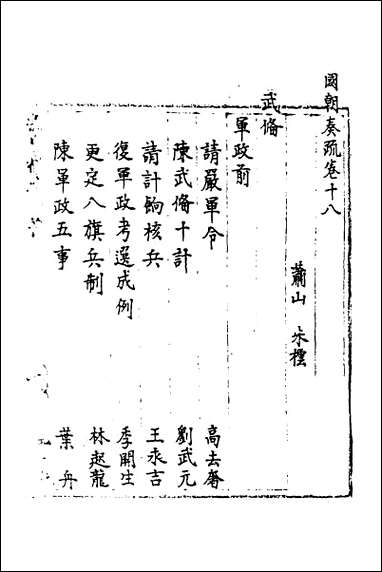 國朝奏疏卷十八
蕭山 朱橒
武俻
軍政前
請嚴軍令 高去奢
陳武俻十計 劉武元
請計餉核兵 王永吉
復軍政考選成例 季開生
更定八旗兵制 林起龍
陳軍政五事 葉舟